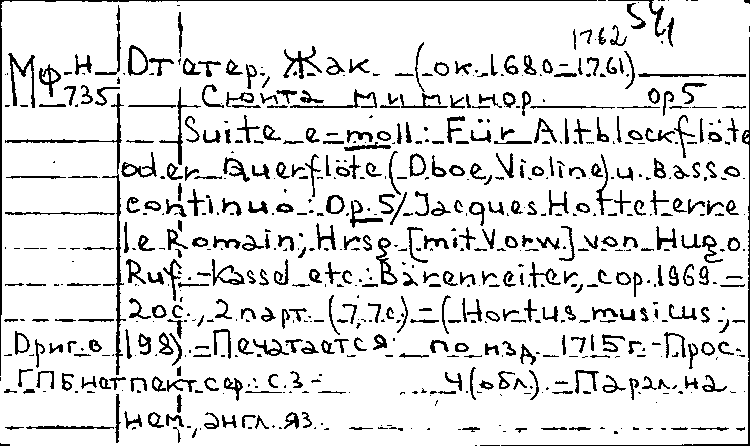 1762 54/1
Мф Н Оттетер, Жак (ок. 1680-1761)
735 Сюита ми минор. op 5
Suite e-moll: Für Altblockflöte
oder Querflöte (Oboe, Violine) u. Basso
continuo: Op. 5 / Jacques Hotteterre
le Romain; Hrsg. [mit Vorw.] von Hugo
Ruf. - Kassel etc.: Bärenreiter, cop. 1969. -
20 с., 2 парт. (7, 7 с.) - (Hortus musicus;
Ориг. в 198). - Печатается по изд. 1715 г. - Прос.
ГПБ нет пект сер.: с. 3 - 4 (обл). - Парал. на
нем., англ. яз.